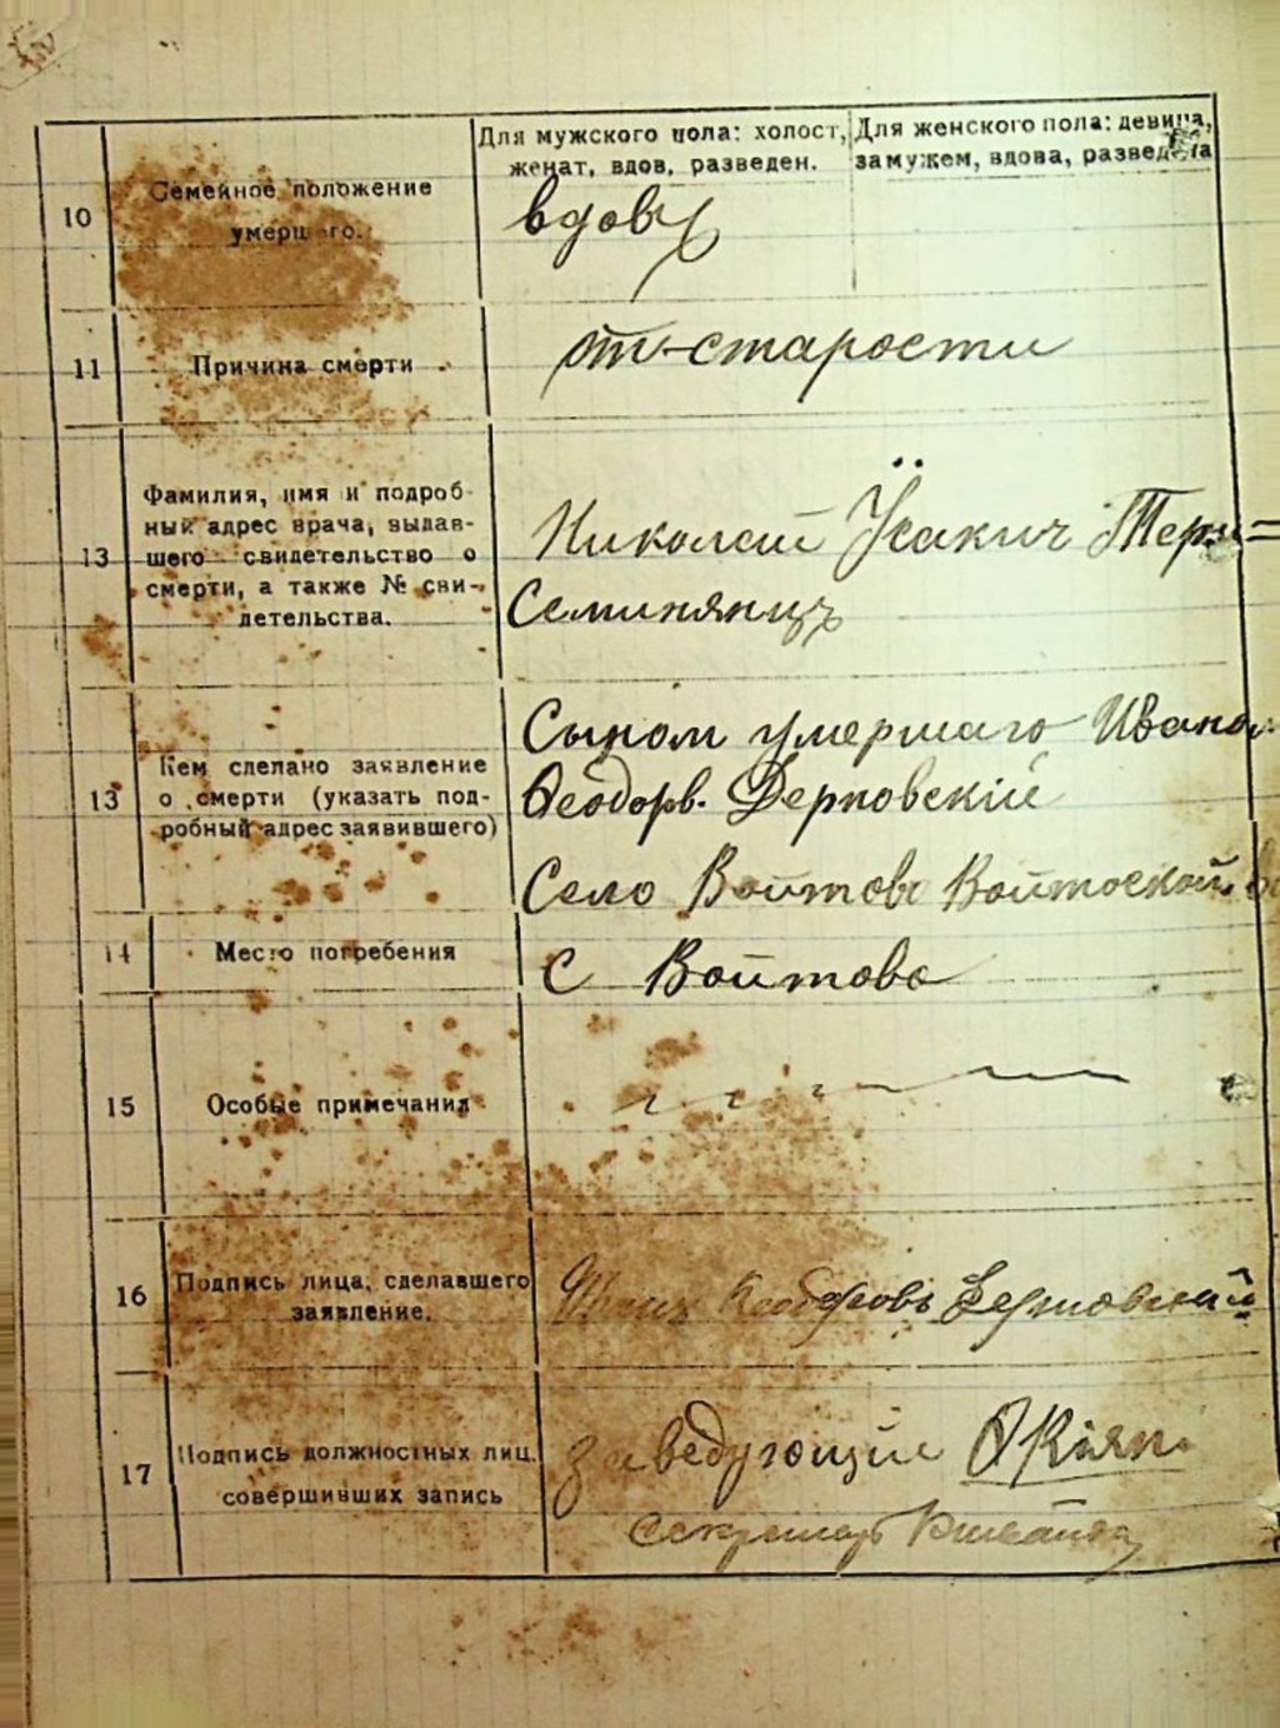 Для мужского пола: холост,
женат, вдов, разведен.
Для женского пола: девица,
замужем, вдова, разведена
10
Семейное положение
умершего.
вдовъ
11
Причина смерти
от старости
13
Фамилия, имя и подроб-
ный адрес врача, выдав-
шего свидетельство о
смерти, а также № сви-
детельства.
Николай
Семинянцъ
13
Кем сделано заявление
о смерти (указать под-
робный адрес заявившего)
Сыном умершаго Ивано
Феодорв. Дерновскій
Село Войтово Войтовской
14
Место погребения
С Войтово
15
Особые примечания
16
Подпись лица, сделавшего
заявление.
17
Подпись должностных лиц,
совершивших запись
Заведующій
Секретарь